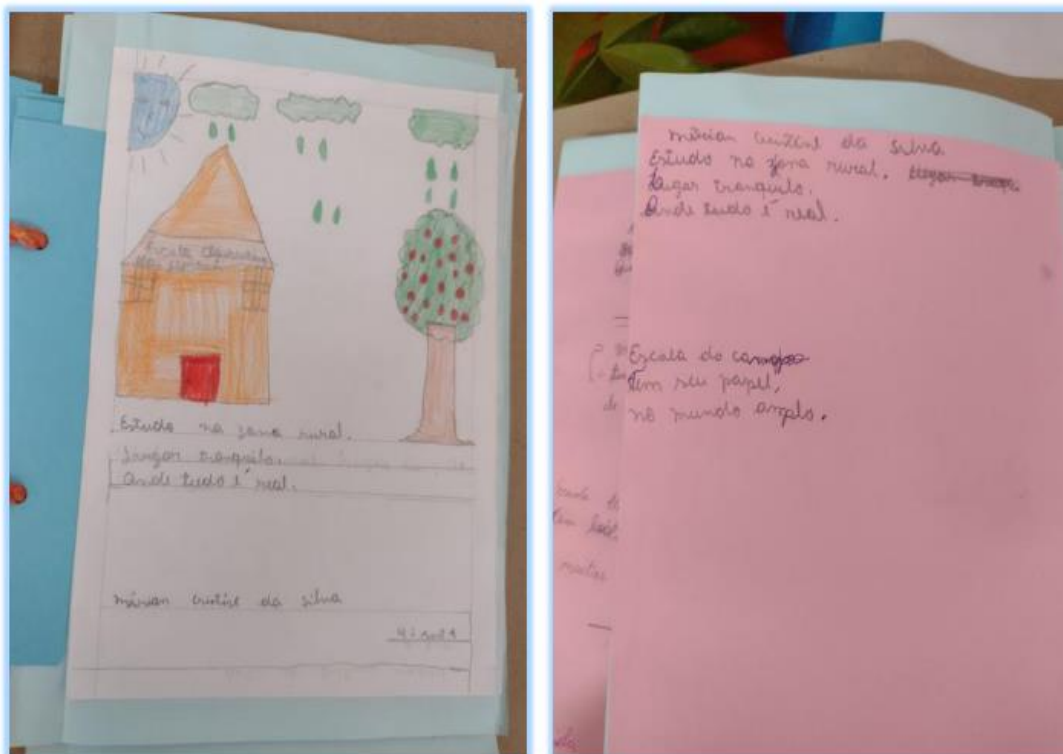 Escola
Estudo na zona rural.
Lugar tranquilo.
Onde tudo é real.
Mírian Cristine da Silva
Mírian da Silva
Estudo na zona rural.
Lugar tranquilo.
Onde tudo é real.
Escola do campo
tem seu papel,
no mundo amplo.